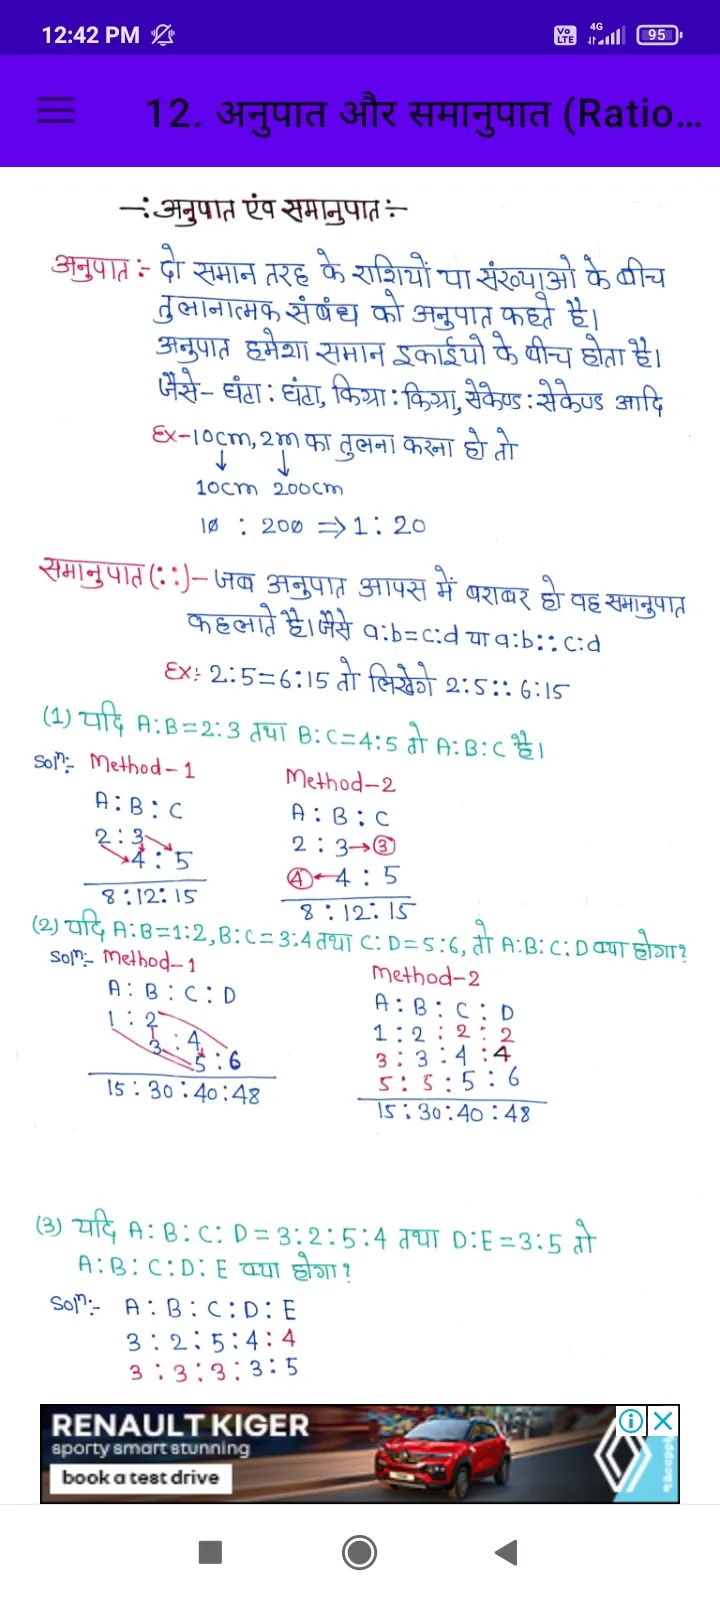 12:42 PM
Vo LTE 4G 95
12. अनुपात और समानुपात (Ratio...
-: अनुपात एंव समानुपात :-
अनुपात :- दो समान तरह के राशियों या संख्याओ के बीच
तुलानात्मक संबंध को अनुपात कहते है।
अनुपात हमेशा समान इकाईयो के बीच होता है।
जैसे- घंटा : घंटा, किग्रा : किग्रा, सेकेण्ड : सेकेण्ड आदि
Ex-10cm, 2m का तुलना करना हो तो
↓ ↓
10cm 200cm
10 : 200 ⇒ 1 : 20
समानुपात (: :) - जब अनुपात आपस में बराबर हो वह समानुपात
कहलाते है। जैसे a:b=c:d या a:b::c:d
Ex: 2:5=6:15 तो लिखेगे 2:5::6:15
(1) यदि A:B=2:3 तथा B:C=4:5 तो A:B:C है।
Solⁿ:- Method-1
A : B : C
2 : 3
4 : 5
8 : 12 : 15
Method-2
A : B : C
2 : 3→③
④←4 : 5
8 : 12 : 15
(2) यदि A:B=1:2, B:C=3:4 तथा C:D=5:6, तो A:B:C:D क्या होगा?
Solⁿ:- Method-1
A : B : C : D
1 : 2
3 : 4
5 : 6
15 : 30 : 40 : 48
Method-2
A : B : C : D
1 : 2 : 2 : 2
3 : 3 : 4 : 4
5 : 5 : 5 : 6
15 : 30 : 40 : 48
(3) यदि A:B:C:D=3:2:5:4 तथा D:E=3:5 तो
A:B:C:D:E क्या होगा?
Solⁿ:- A : B : C : D : E
3 : 2 : 5 : 4 : 4
3 : 3 : 3 : 3 : 5
RENAULT KIGER
sporty smart stunning
book a test drive